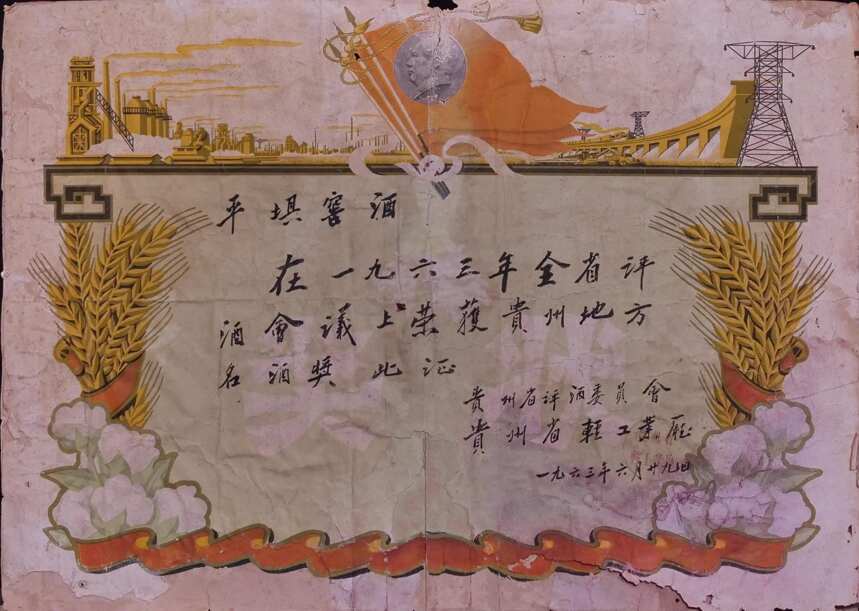 平埧窖酒
在一九六三年全省评
酒會議上荣獲貴州地方
名酒奬此证
貴州省评酒委員會
貴州省輕工業厅
一九六三年六月廿九日